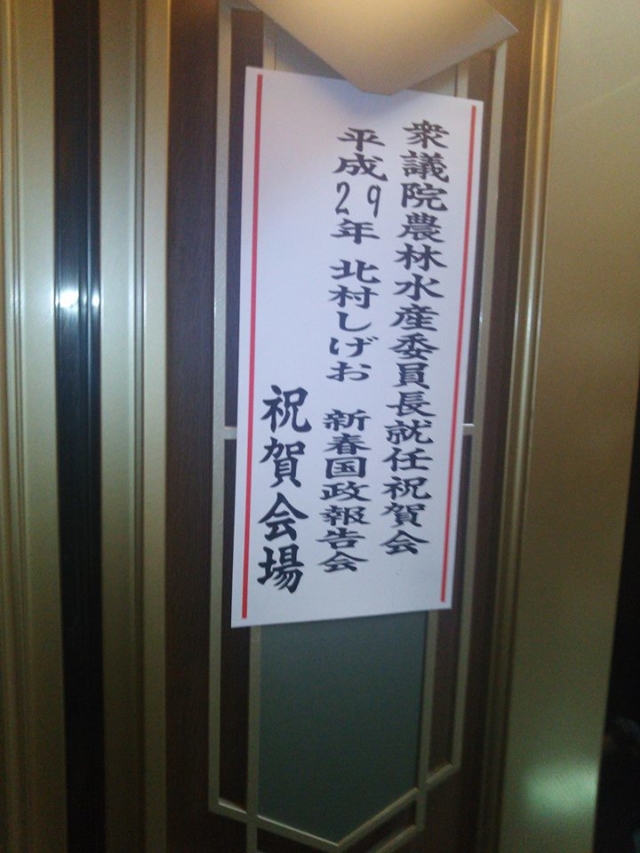 衆議院農林水産委員長就任祝賀会
平成29年 北村しげお 新春国政報告会
祝賀会場